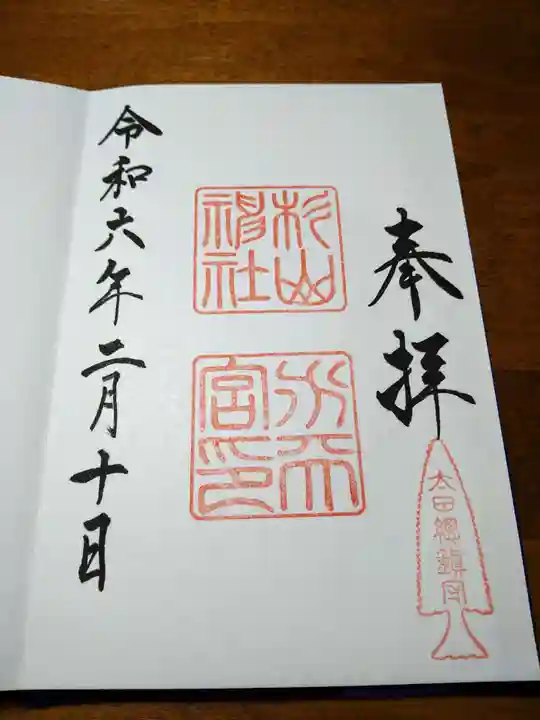 奉拝
太田總鎮守
杉山
神社
水天
宮印
令和六年二月十日